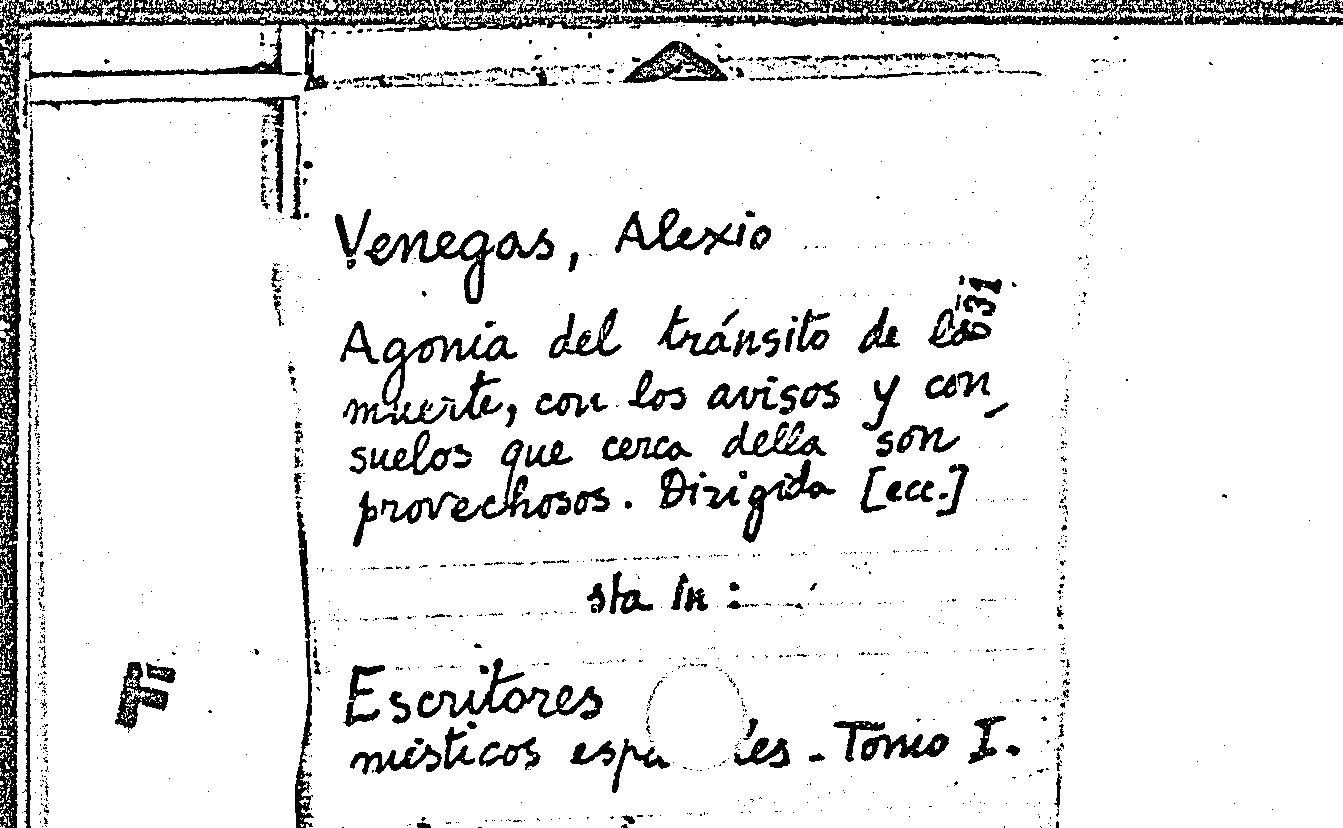 Venegas, Alexio
631
Agonia del tránsito de la
muerte, con los avisos y con
suelos que cerca della son
provechosos. Dirigida [ecc.]
sta in:
Escritores
místicos - Tomo I.